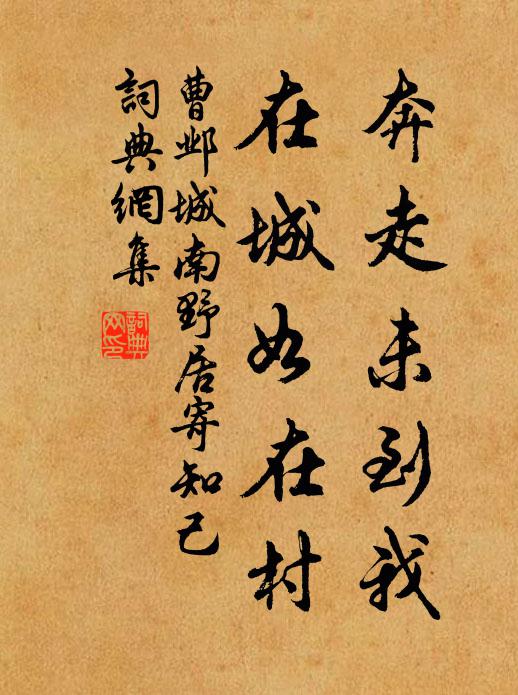 奔走未到我
在城如在村
曹邺城南野居寄知己
詞典網集
詞典网印